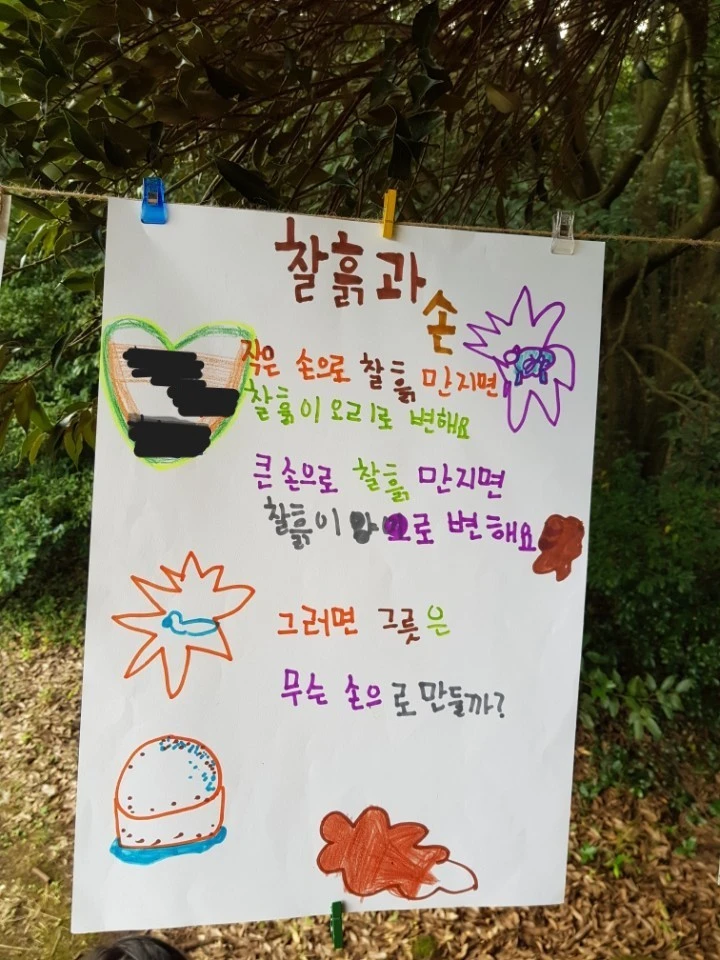 찰흙과 손
작은 손으로 찰흙 만지면
찰흙이 오리로 변해요
큰 손으로 찰흙 만지면
찰흙이 으로 변해요
그러면 그릇은
무슨 손으로 만들까?